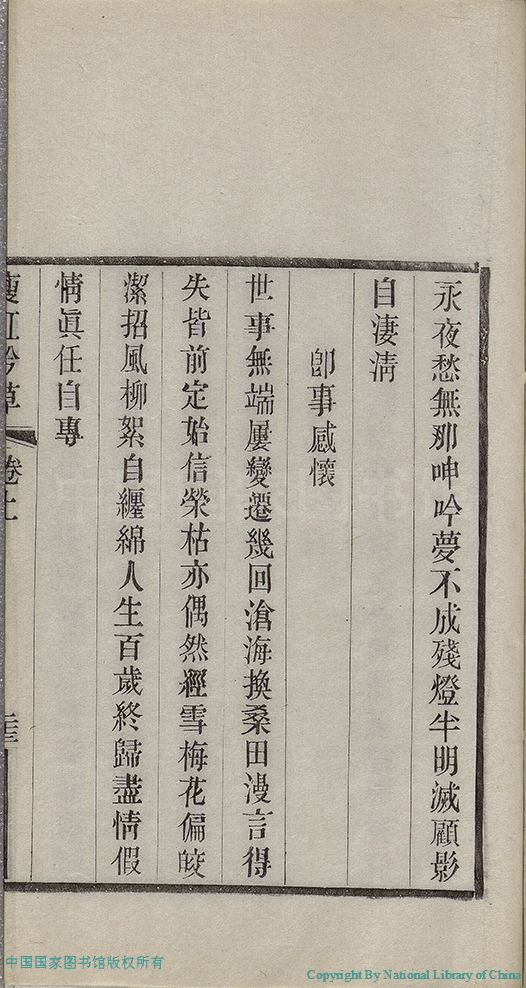 永夜愁無那呻吟夢不成殘燈半明滅顧影
自淒淸
卽事感懷
世事無端屢變遷幾回滄海換桑田漫言得
失皆前定始信榮枯亦偶然經雪梅花偏皎
潔招風柳絮自纏綿人生百歲終歸盡情假
情眞任自專
吟草
卷上
中国国家图书馆版权所有
Copyright By National Library of China